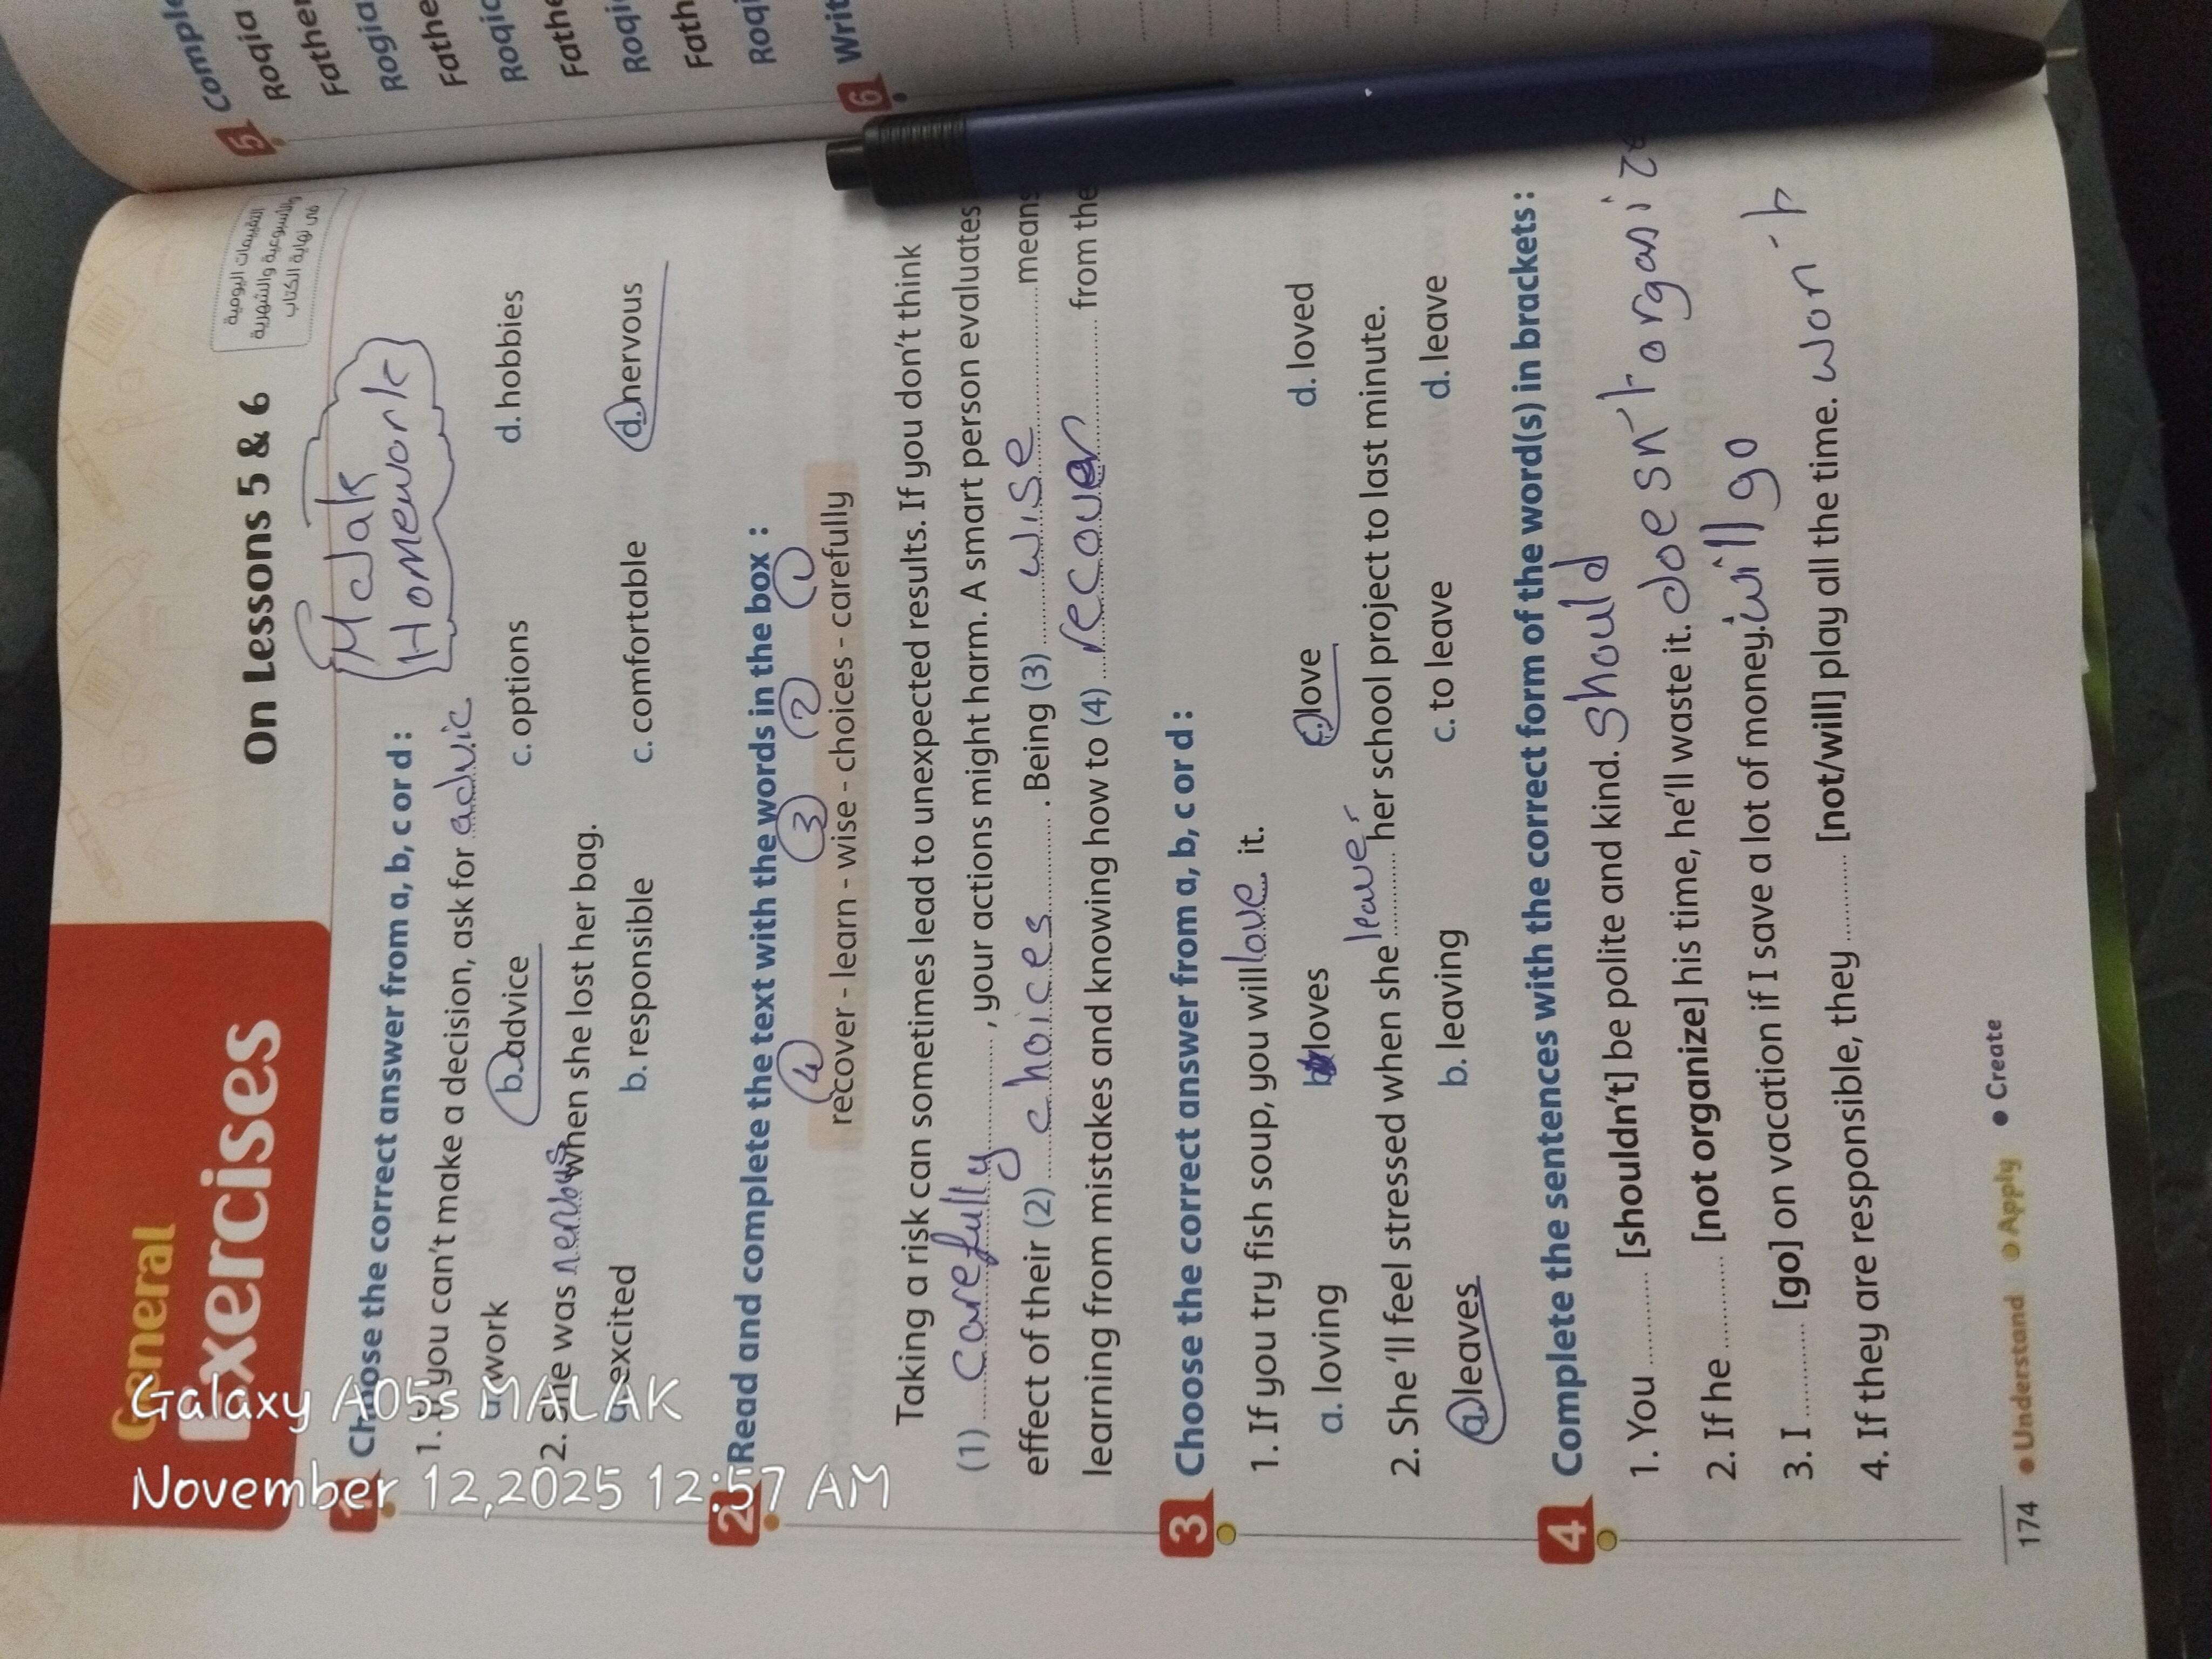 General
Exercises
On Lessons 5 & 6
التقييمات اليومية
والأسبوعية والشهرية
فى نهاية الكتاب
Malak
Homework
1 Choose the correct answer from a, b, c or d :
1. If you can't make a decision, ask for advic
a. work b. advice c. options d. hobbies
2. She was nervous when she lost her bag.
a. excited b. responsible c. comfortable d. nervous
2 Read and complete the text with the words in the box :
4 3 2 1
recover - learn - wise - choices - carefully
Taking a risk can sometimes lead to unexpected results. If you don't think
(1) carefully, your actions might harm. A smart person evaluates
effect of their (2) choices. Being (3) wise means
learning from mistakes and knowing how to (4) recover from the
3 Choose the correct answer from a, b, c or d :
1. If you try fish soup, you will love it.
a. loving b. loves c. love d. loved
2. She'll feel stressed when she leave her school project to last minute.
a. leaves b. leaving c. to leave d. leave
4 Complete the sentences with the correct form of the word(s) in brackets :
1. You ............ [shouldn't] be polite and kind. should
2. If he ............ [not organize] his time, he'll waste it. doesn't organize
3. I ............ [go] on vacation if I save a lot of money. will go
4. If they are responsible, they ............ [not/will] play all the time. won't
174 • Understand • Apply • Create
5 Comple
Roqia
Father
Roqia
Fathe
Roqia
Fathe
Roqi
Fath
Roqi
6 Writ
Galaxy A05s MALAK
November 12,2025 12:57 AM